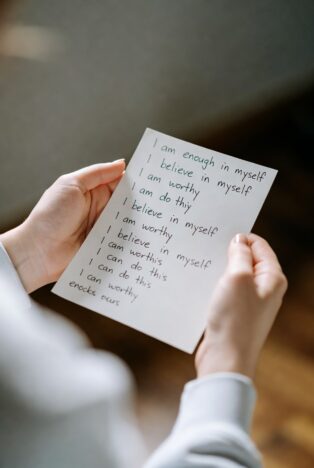 I am enough in myself
I believe in myself
I am worthy
I am do thiy
I believe in myself
I am worthy
I believe in myself
I am worthis
I can do this
I can do this
I can worthy
enocks ours